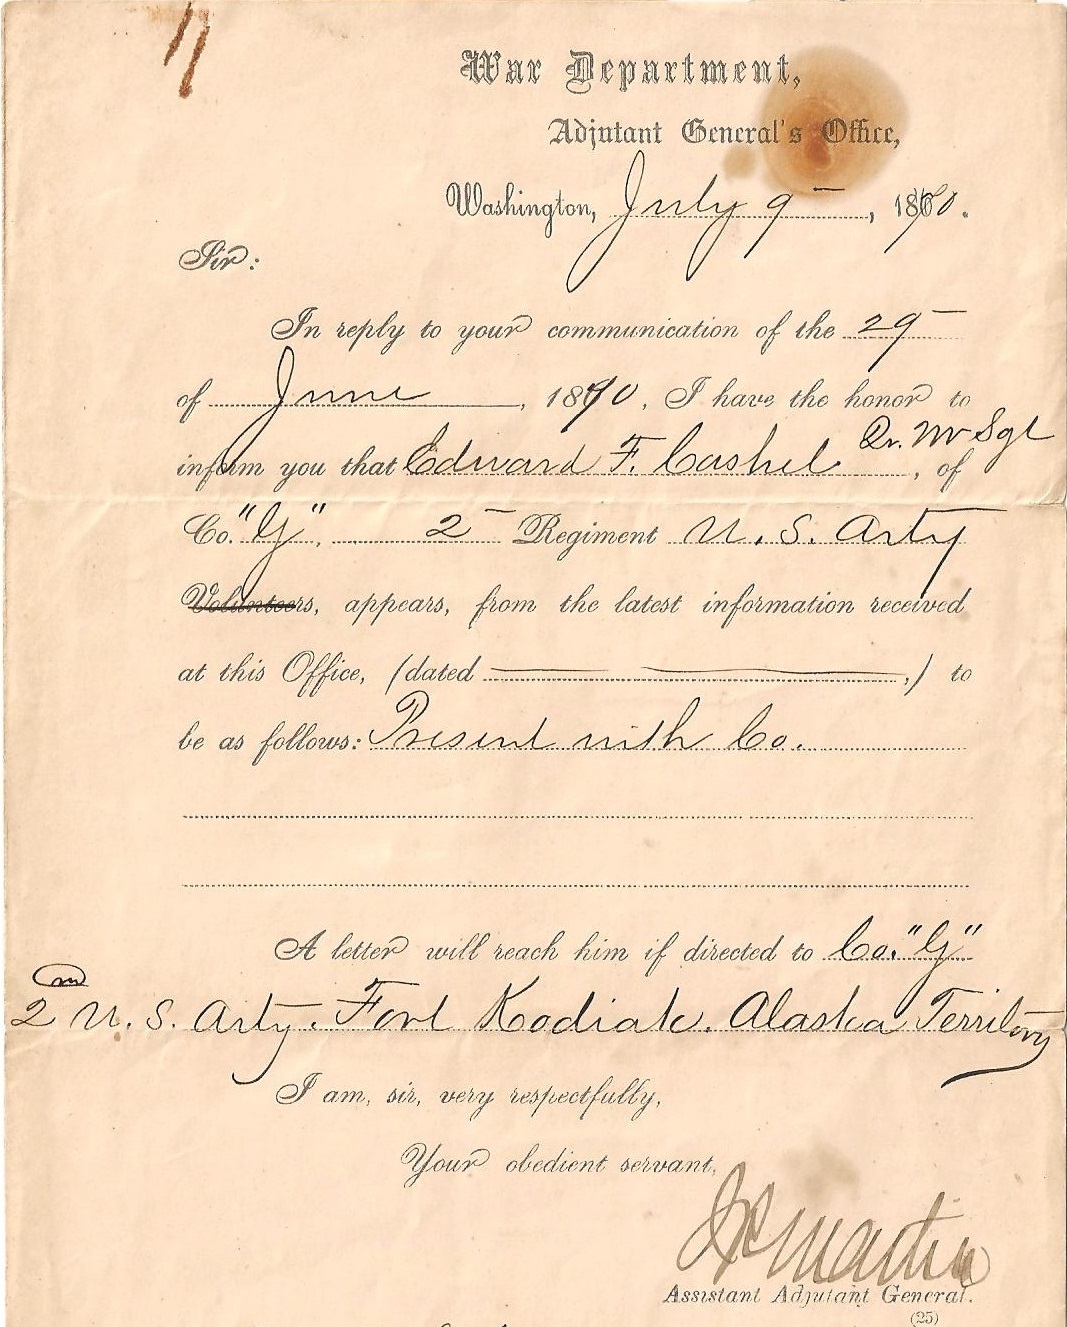 War Department,
Adjutant General's Office,
Washington, July 9, 1870.
Sir:
In reply to your communication of the 29
of June, 1870, I have the honor to
inform you that Edward F. Cashel Qr. Mr Sgt, of
Co. "G", 2 Regiment U. S. Arty
Volunteers, appears, from the latest information received
at this Office, (dated ,) to
be as follows: Present with Co.
A letter will reach him if directed to Co. "G"
2nd U. S. Arty. Fort Kodiak. Alaska Territory
I am, sir, very respectfully,
Your obedient servant,
J P Martin
Assistant Adjutant General.
(25)